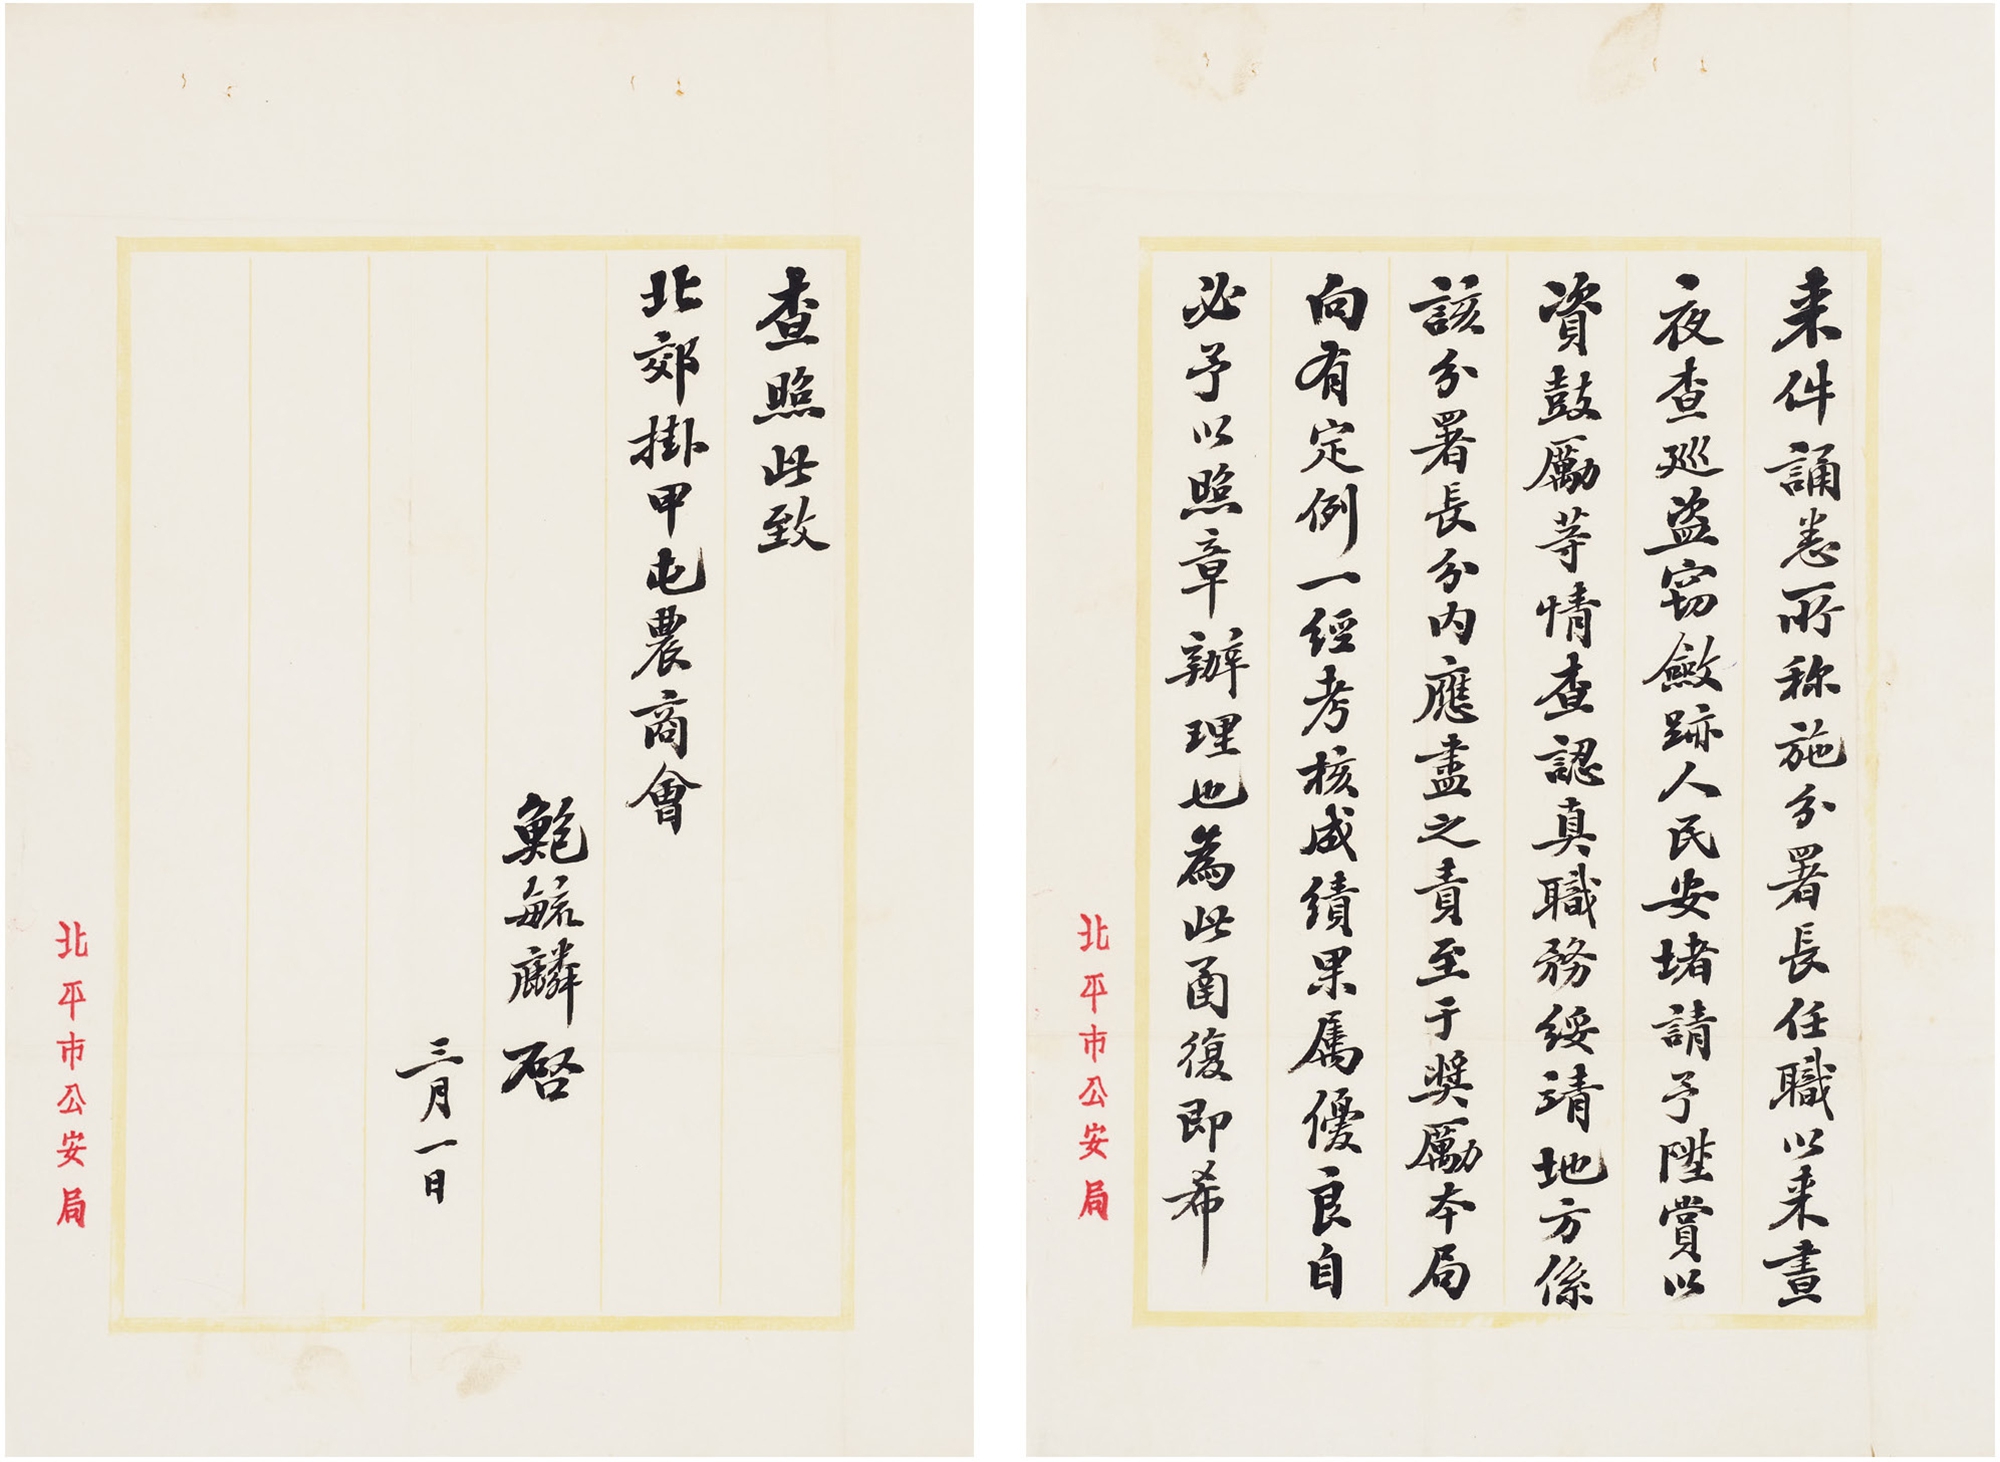 来件誦悉所称施分署長任職以来晝
夜查巡盜窃斂跡人民安堵請予陞賞以
資鼓厲等情查認真職務綏靖地方係
該分署長分內應盡之責至于奨厲本局
向有定例一經考核成績果屬優良自
必予以照章辦理也為此函復即希
北平市公安局
查照此致
北郊掛甲屯農商會
鮑毓麟啓
三月一日
北平市公安局